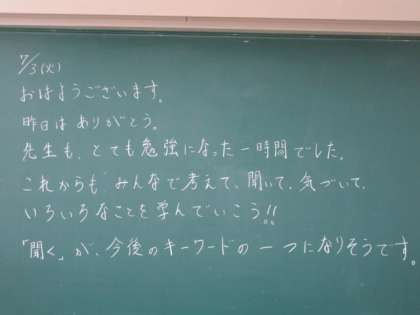 7/3(火)
おはようございます。
昨日はありがとう。
先生も、とても勉強になった一時間でした。
これからも みんなで考えて、聞いて、気づいて、
いろいろなことを学んでいこう!!
「聞く」が、今後のキーワードの一つになりそうです。